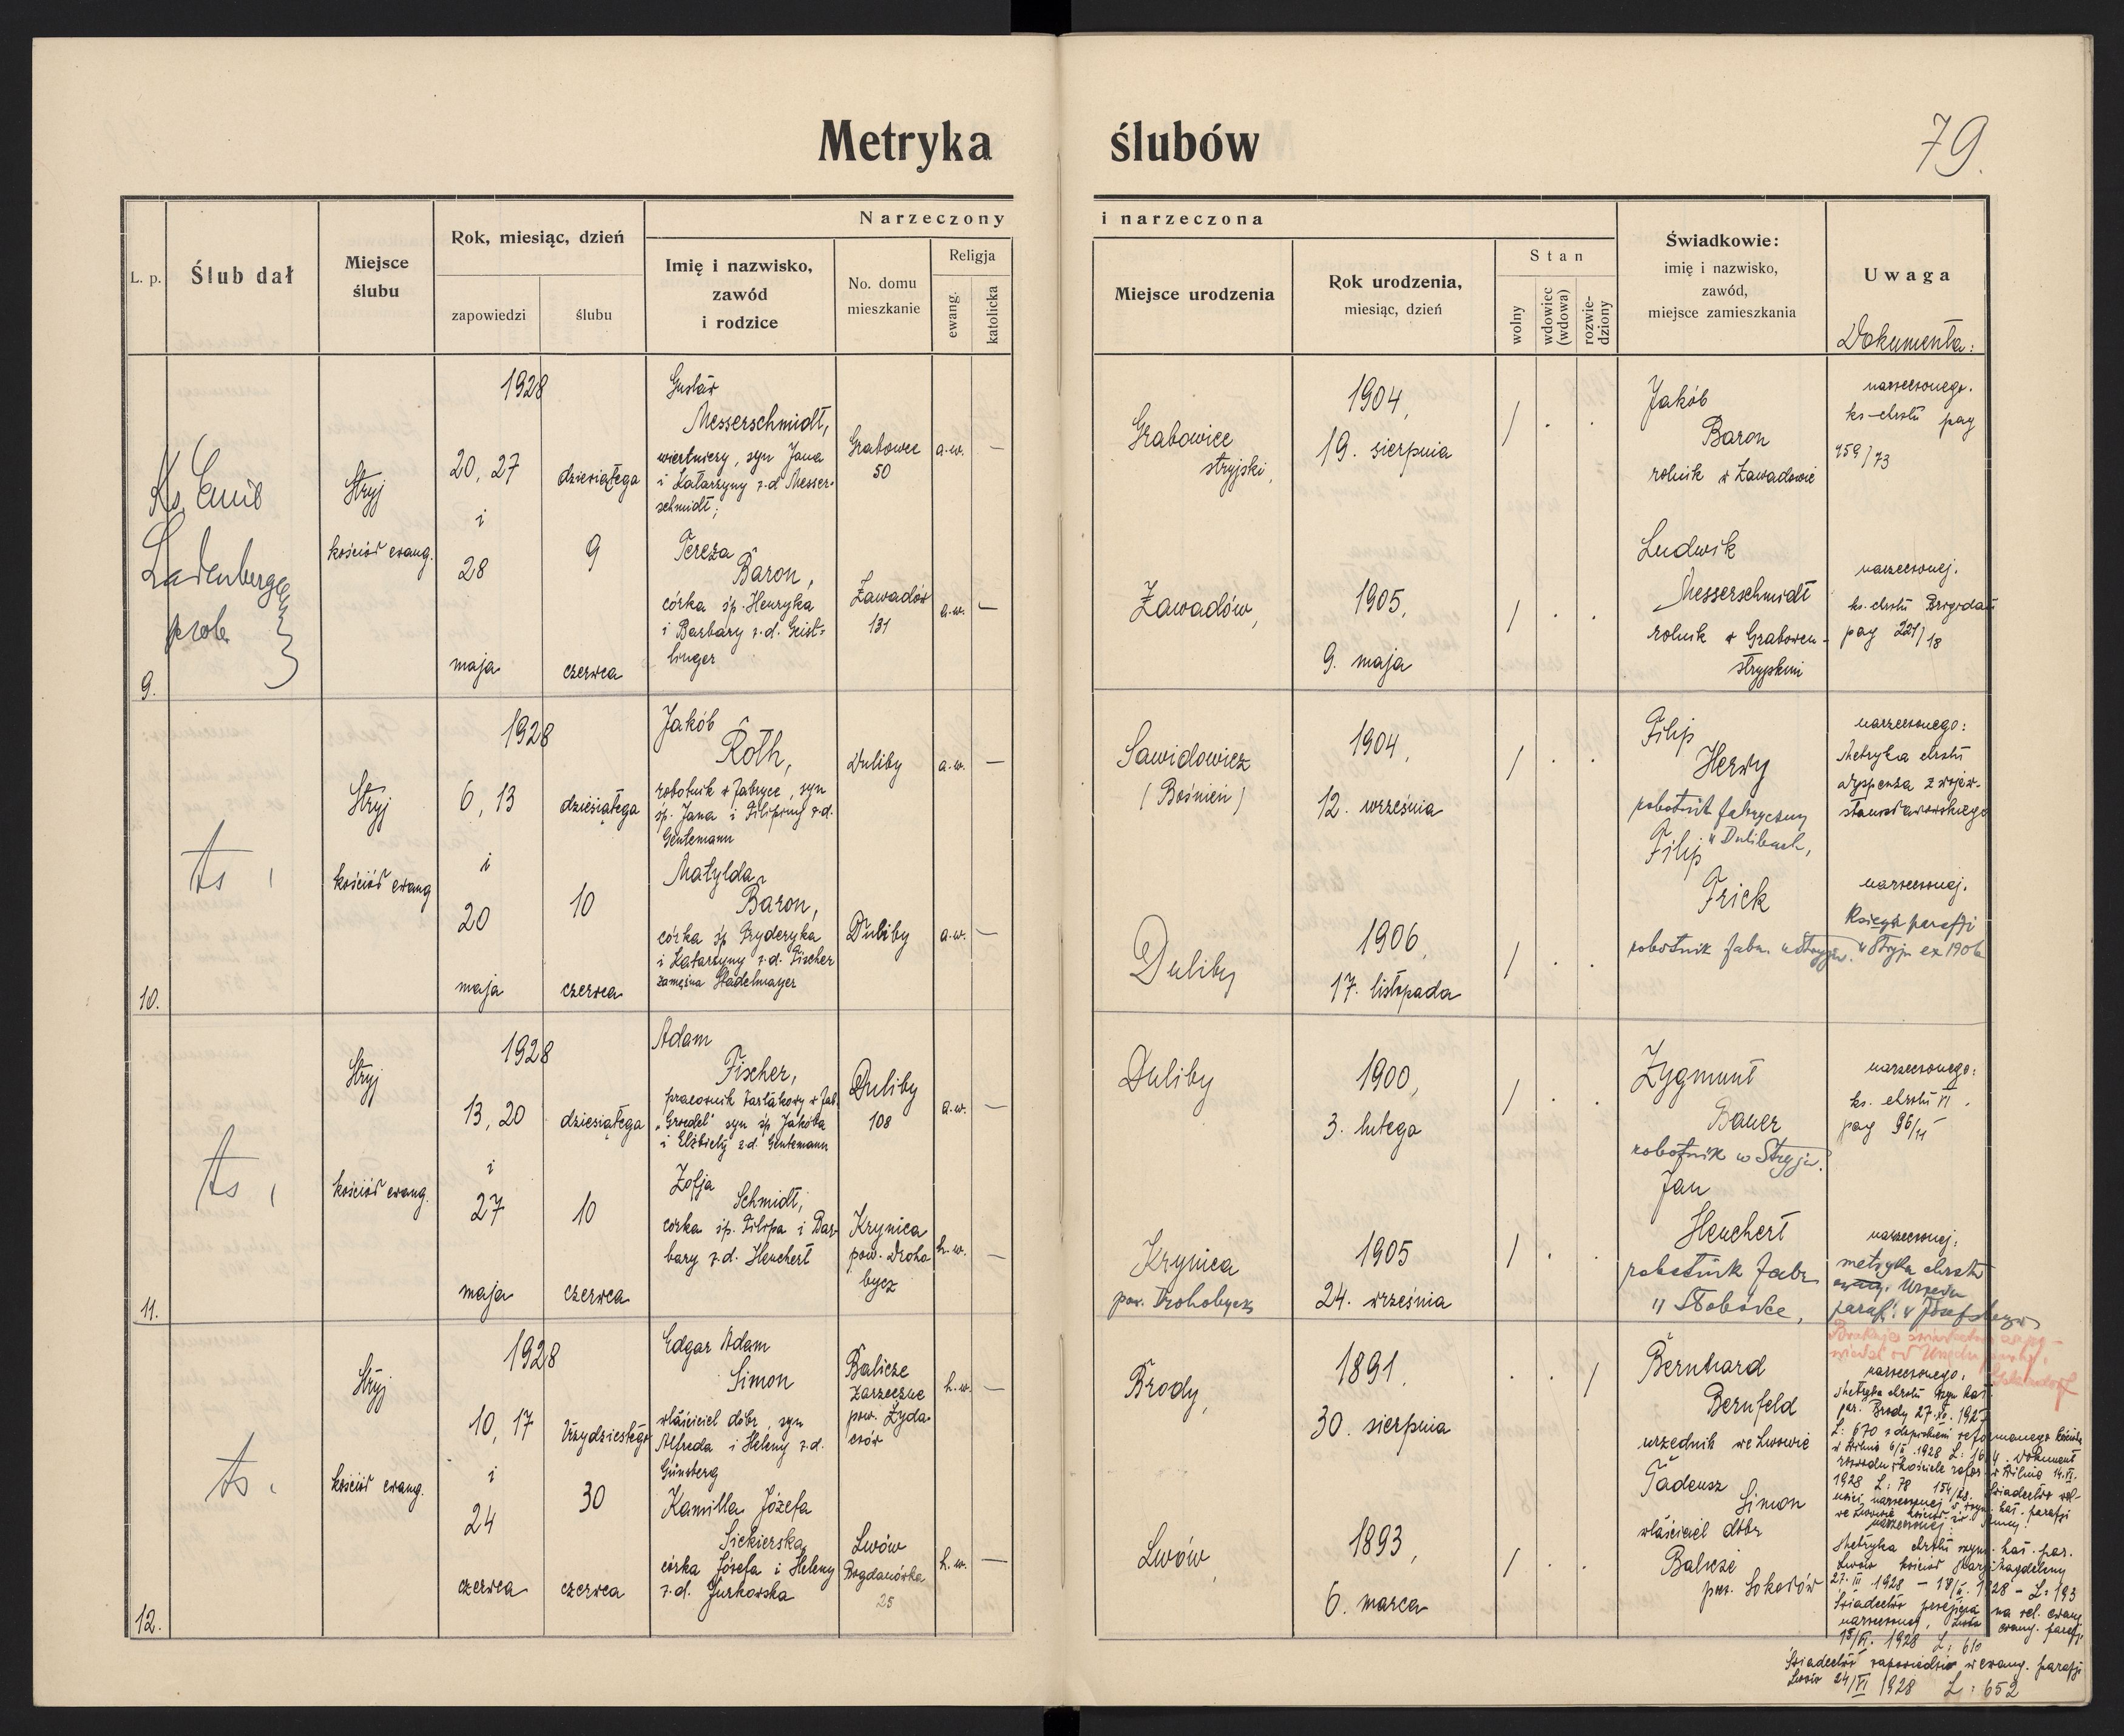 Metryka ślubów
79.
L. p.
Ślub dał
Miejsce
ślubu
Rok, miesiąc, dzień
zapowiedzi
ślubu
Narzeczony i narzeczona
Imię i nazwisko,
zawód
i rodzice
No. domu
mieszkanie
Religja
ewang.
katolicka
Miejsce urodzenia
Rok urodzenia,
miesiąc, dzień
Stan
wolny
wdowiec
(wdowa)
rozwie-
dziony
Świadkowie:
imię i nazwisko,
zawód,
miejsce zamieszkania
Uwaga
Dokumenta:
9.
Ks. Emil
Ladenberger
prob.
Stryj
kościół ewang.
1928
20, 27
i
28
maja
dziesiątego
9
czerwca
Gustaw
Messerschmidt,
wiertniczy, syn Jana
i Katarzyny z.d. Messer-
schmidt;
Grabowce
50
a.w. —
Tereza
Baron,
córka śp. Henryka
i Barbary z.d. Geist-
linger
Zawadów
131
a.w. —
Grabowice
stryjski,
1904,
19. sierpnia
/ . .
Zawadów,
1905,
9. maja
/ . .
Jakób
Baron
rolnik w Zawadowie
Ludwik
Messerschmidt
rolnik w Grabowcu-
stryjskim
narzeczonego.
ks. chrztu pag
259/73
narzeczonej.
ks. chrztu Brigidau
pag 221/18
10.
ts.
Stryj
kościół ewang
1928
6, 13
i
20
maja
dziesiątego
10
czerwca
Jakób
Roth,
robotnik w fabryce, syn
śp. Jana i Filipiny z.d.
Gentemann
Duliby
a.w. —
Matylda
Baron,
córka śp Fryderyka
i Katarzyny z.d. Fischer
zamężna Stadelmayer
Duliby
a.w. —
Sawidowicz
(Bośnień)
1904,
12. września
/ . .
Duliby
1906,
17. listopada
/ . .
Filip
Herwy
robotnik fabryczny
w Dulibach,
Filip
Frick
robotnik fabr. w Stryju.
narzeczonego:
Metryka chrztu
dyspenza z wojew.
stanisławowskiego
narzeczonej.
Księga parafji
w Stryju ex 1906
11.
ts.
Stryj
kościół ewang.
1928
13, 20
i
27
maja
dziesiątego
10
czerwca
Adam
Fischer,
pracownik tartakowy w fab.
"Groedel" syn śp. Jakóba
i Elżbiety z.d. Gentemann
Duliby
108
a.w. —
Zofja
Schmidt,
córka śp. Filipa i Bar-
bary z.d. Heuchert
Krynica
pow. Droho
bycz
h.w. —
Duliby
1900,
3. lutego
/ . .
Krynica
pow. Drohobycz
1905
24. września
/ . .
Zygmunt
Bauer
robotnik w Stryju.
Jan
Heuchert
robotnik fabr.
w Słobódce,
narzeczonego:
ks. chrztu VI.
pag 96/11
narzeczonej:
metryka chrztu
Urzędu
paraf. w Josefsbergu
12.
ts.
Stryj
kościół ewang.
1928
10, 17
i
24
czerwca
trzydziestego
30
czerwca
Edgar Adam
Simon
właściciel dóbr, syn
Alfreda i Heleny z.d.
Günsberg
Balicze
zarzeczne
pow. Żyda-
czów
h.w. —
Kamilla Józefa
Siekierska,
córka Józefa i Heleny
z.d. Jurkowska
Lwów
Bogdanówka
25
h.w. —
Brody,
1891,
30. sierpnia
. . /
Lwów,
1893,
6. marca
/ . .
Bernhard
Bernfeld
urzędnik we Lwowie
Tadeusz
Simon
właściciel dóbr
Balicze
pow. Sokołów
narzeczonego,
Metryka chrztu rzym kat.
par. Brody 27.XI. 1927
L: 670 z dopiskiem reformowanego kościoła
w Wilnie 6/II. 1928 L: 164. Dokument
rozwodu w kościele refor. w Wilnie 14.VI.
1928 L: 78 154/28. Świadectwo wol-
ności narzeczonej
narzeczonej:
Metryka chrztu rzym. kat. par.
Lwów kościół Marji Magdaleny
27. III 1928 — L: 193
Świadectwo przejścia na rel. ewang.
narzeczonej, Lwów ewang. parafji
15/VI. 1928 L: 610
Świadectwo zapowiedzi w ewang. parafji
Lwów 24/VI 1928 L: 652